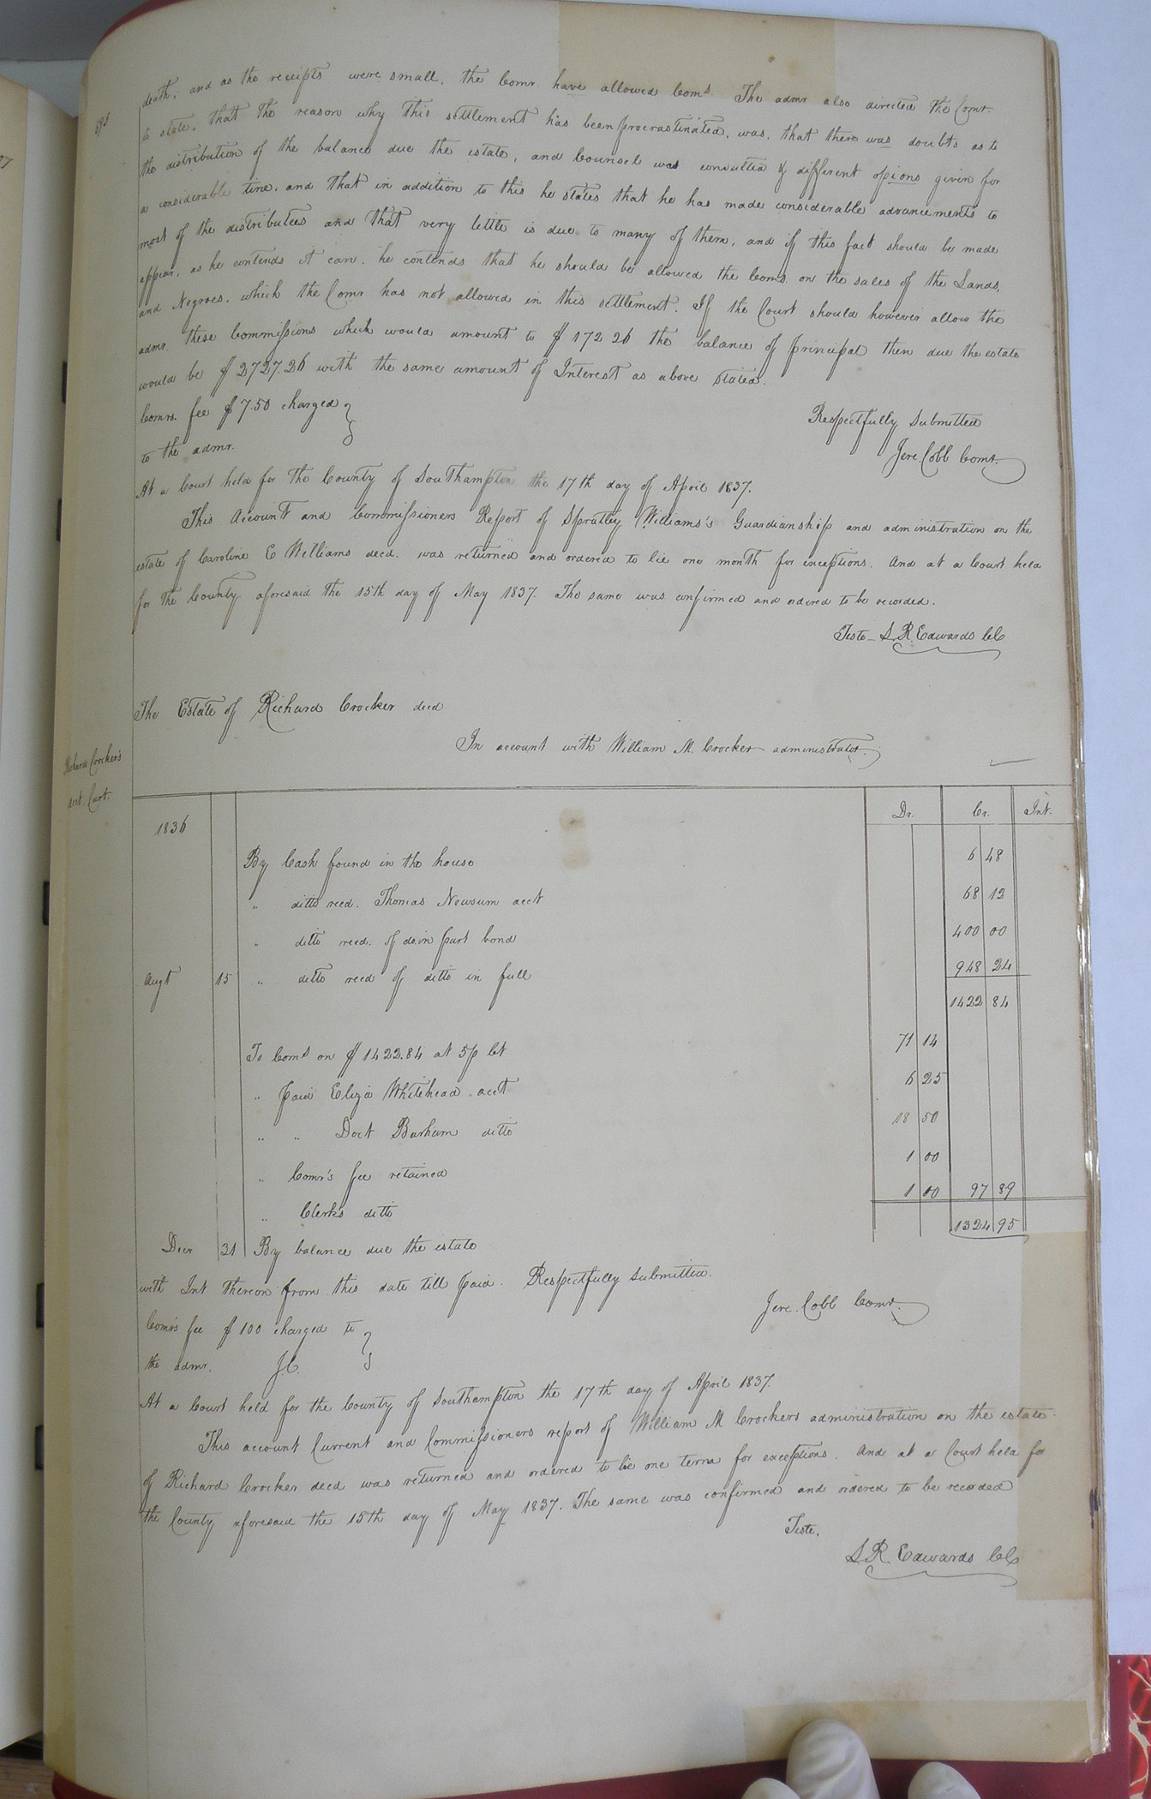 death, and as the receipts were small, the Comr. have allowed Coms. The admr also directed the Comr.
to state, that the reason why this settlement has been procrastinated, was, that there was doubts as to
the distribution of the balance due the estate, and Counsel was consulted & different opions given for
a considerable time, and that in addition to this he states that he has made considerable advancements to
most of the distributees and that very little is due to many of them, and if this fact should be made
appear, as he contends it can, he contends that he should be allowed the Coms. on the sales of the Lands,
and Negroes, which the Comr has not allowed in this settlement. If the Court should however allow the
admr. these Commissions which would amount to $172 26 the balance of principal then due the estate
would be $2727.26 with the same amount of Interest as above stated.
Comrs. fee $7.50 charged
to the admr.
Respectfully Submitted
Jere Cobb Comr.
At a Court held for the County of Southampton the 17th day of April 1837.
This Account and Commissioners Report of Spratley Williams's Guardianship and administration on the
estate of Caroline E Williams decd. was returned and ordered to lie one month for exceptions. And at a Court held
for the County aforesaid the 15th day of May 1837. The same was confirmed and ordered to be recorded.
Teste - S. R. Edwards CC
The Estate of Richard Crocker decd
In account with William M. Crocker administrator.
Richard Crocker's
acct. Curt.
Dr. Cr. Int.
1836
By Cash found in the house 6 48
" ditto recd. Thomas Newsum acct 68 12
" ditto recd. of do in part bond 400 00
Augt 15 " ditto recd of ditto in full 948 24
1422 84
To Coms on $1422.84 at 5 p Ct 71 14
" Paid Eliza Whitehead acct 6 25
" " Doct Barham ditto 18 50
" Comr's fee retained 1 00
" Clerks ditto 1 00 97 89
Decr 31 By balance due the estate 1324 95
with Int thereon from this date till paid. Respectfully Submitted.
Jere. Cobb Comr.
Comrs fee $100 charged to
the admr. J.C.
At a Court held for the County of Southampton the 17th day of April 1837.
This account Current and Commissioners report of William M Crockers administration on the estate
of Richard Crocker decd was returned and ordered to lie one term for exceptions. And at a Court held for
the County aforesaid the 15th day of May 1837. The same was confirmed and ordered to be recorded
Teste.
S. R. Edwards CC